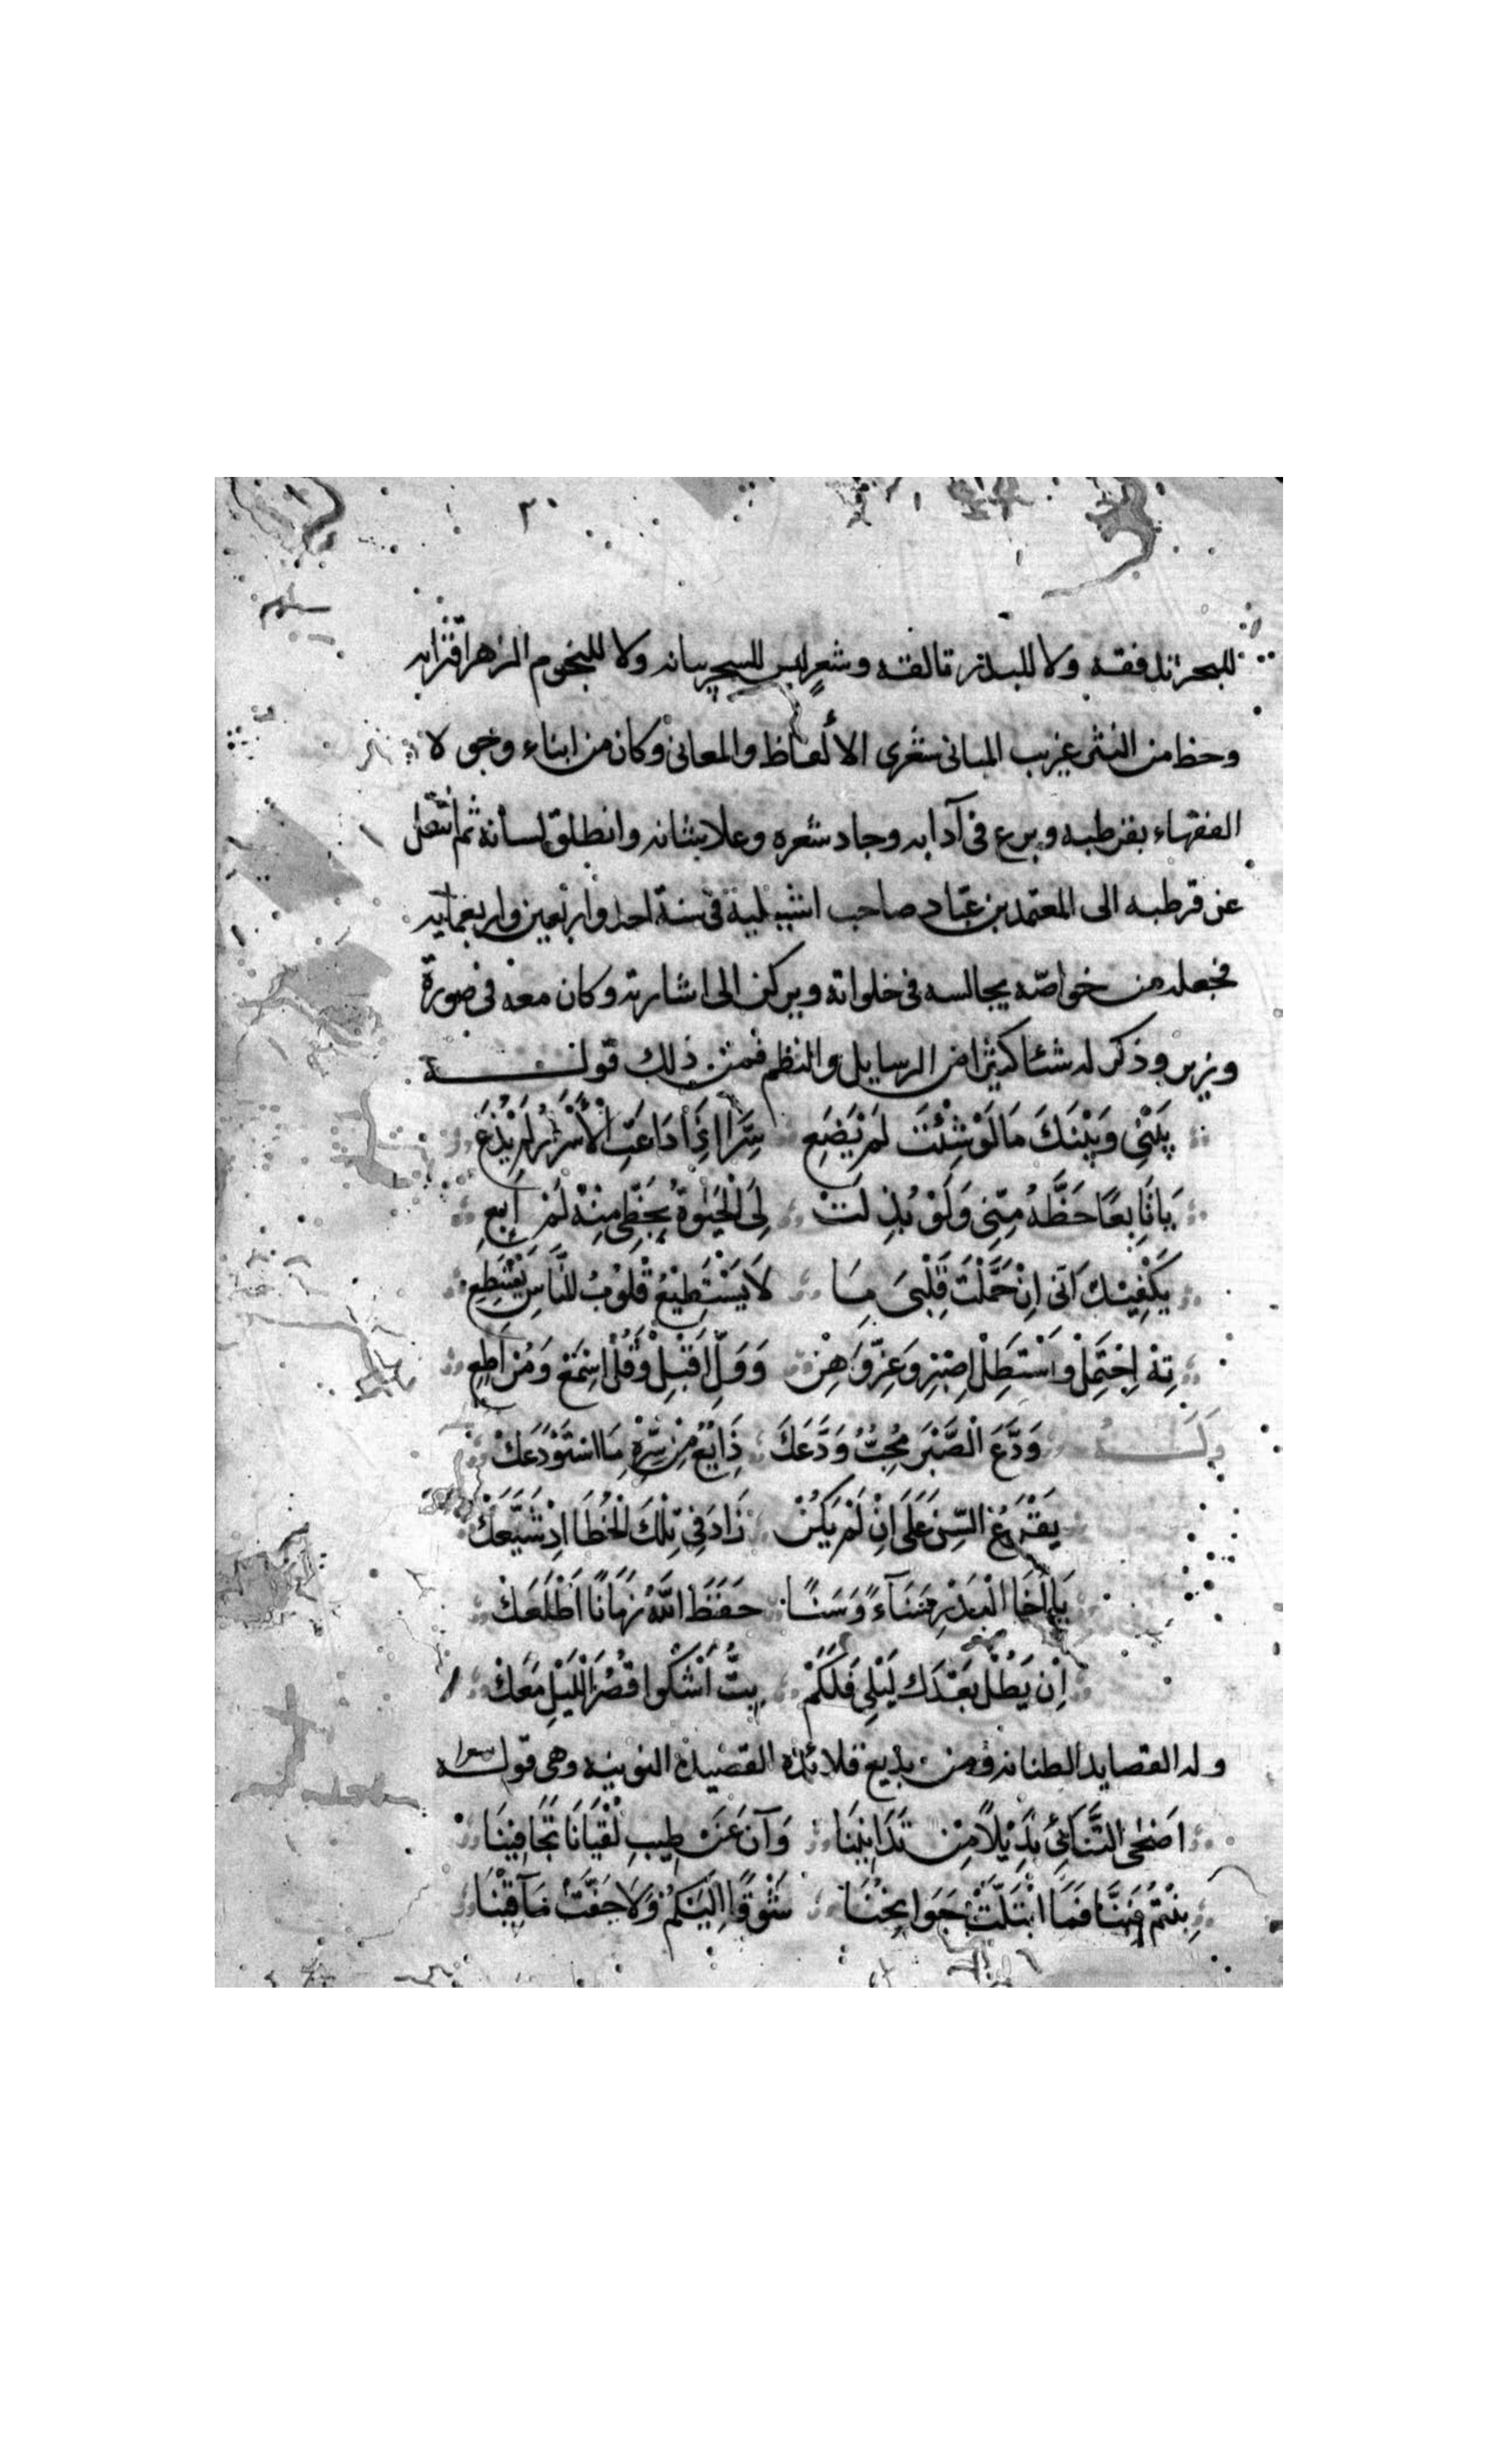 ٢٠
للبحر تدفقه ولا للبدر تألقه وشعر ليس للسحر بيانه ولا للنجوم الزهر اقترانه
وحظ من النثر غريب المباني شعرى الألفاظ والمعاني وكان من ابناء وجوه لا
الفقهاء بقرطبه وبرع فى آدابه وجاد شعره وعلا شانه وانطلق لسانه ثم انتقل
عن قرطبه الى المعتمد بن عبّاد صاحب اشبيلية فى سنة احد واربعين واربعمايه
فجعله من خواصّه يجالسه فى خلواته ويركن الى اشارته وكان معه فى صورة
وزير وذكر له شئا كثيرا من الرسايل والنظم فمن ذلك قوله
بَيْنِي وَبَيْنَكَ مَا لَوْ شِئْتَ لَمْ يَضَعِ سِرَّا اِذَا ذَاعَتِ الْأَسْرَارُ لَمْ يَذِعَ
يَا بَايِعًا حَظَّهُ مِنّىِ وَلَوْ بُذِلَتْ لِىَ الْحَيَوةُ بِحَظِّى مِنْهُ لَمْ اَبِعِ
يَكْفِيْكَ اَنّى اِنْ حَمَّلْتَ قَلْبىَ مَا لاَ يَسْتَطِيْعُ قُلُوْبُ النَّاسِ يَسْتَطِعِ
تِهْ اِحْتَمِلْ وَاسْتَطِلْ اِصْبِرْ وَعِزَّ وَهِنْ وَوَلِّ اَقْبِلْ وَقُلْ اِسْمَعْ وَمُرْ اَطِعِ
وَلَهُ وَدَّعَ الْصَّبْرَ مُحِبُّ وَدَّعَكَ ذَايِعُ مِنْ سِّرِّهِ مَا اسْتَوْدَعَكْ
يَقْرَعُ السِّنَ عَلَى اِنْ لَمْ يَكُنْ زَادَ فِى تِلْكَ الْخُطَا اِذْ شَيَّعَكْ
يَا اَخَا الْبَدْرِ سَنَآءً وَسَنًا حَفَظَ اللّٰهُ زَمَانًا اَطْلَعَكْ
اِنْ يَطُلْ بَعْدَكَ لَيْلِى فَلَكَمْ بِتُّ اَشْكُوا قُصُرَ اللَّيْلِ مَعَكْ
وله القصايد الطنانه ومن بديع قلائده القصيدة النونيه وهى قوله
اَضْحَى التَّنَائِي بَدِيْلاً مِنْ تَدَانِيْنَا وَآنَ عَنْ طِيبِ لُقْيَانَا تَجَافِيْنَا
بِنْتُمْ وَبِنَّا فَمَا ابْتَلَّتْ جَوَانِحُنَا شَوْقًا اِلَيْكُمْ وَلاَ جَفَّتْ مَآقِيْنَا